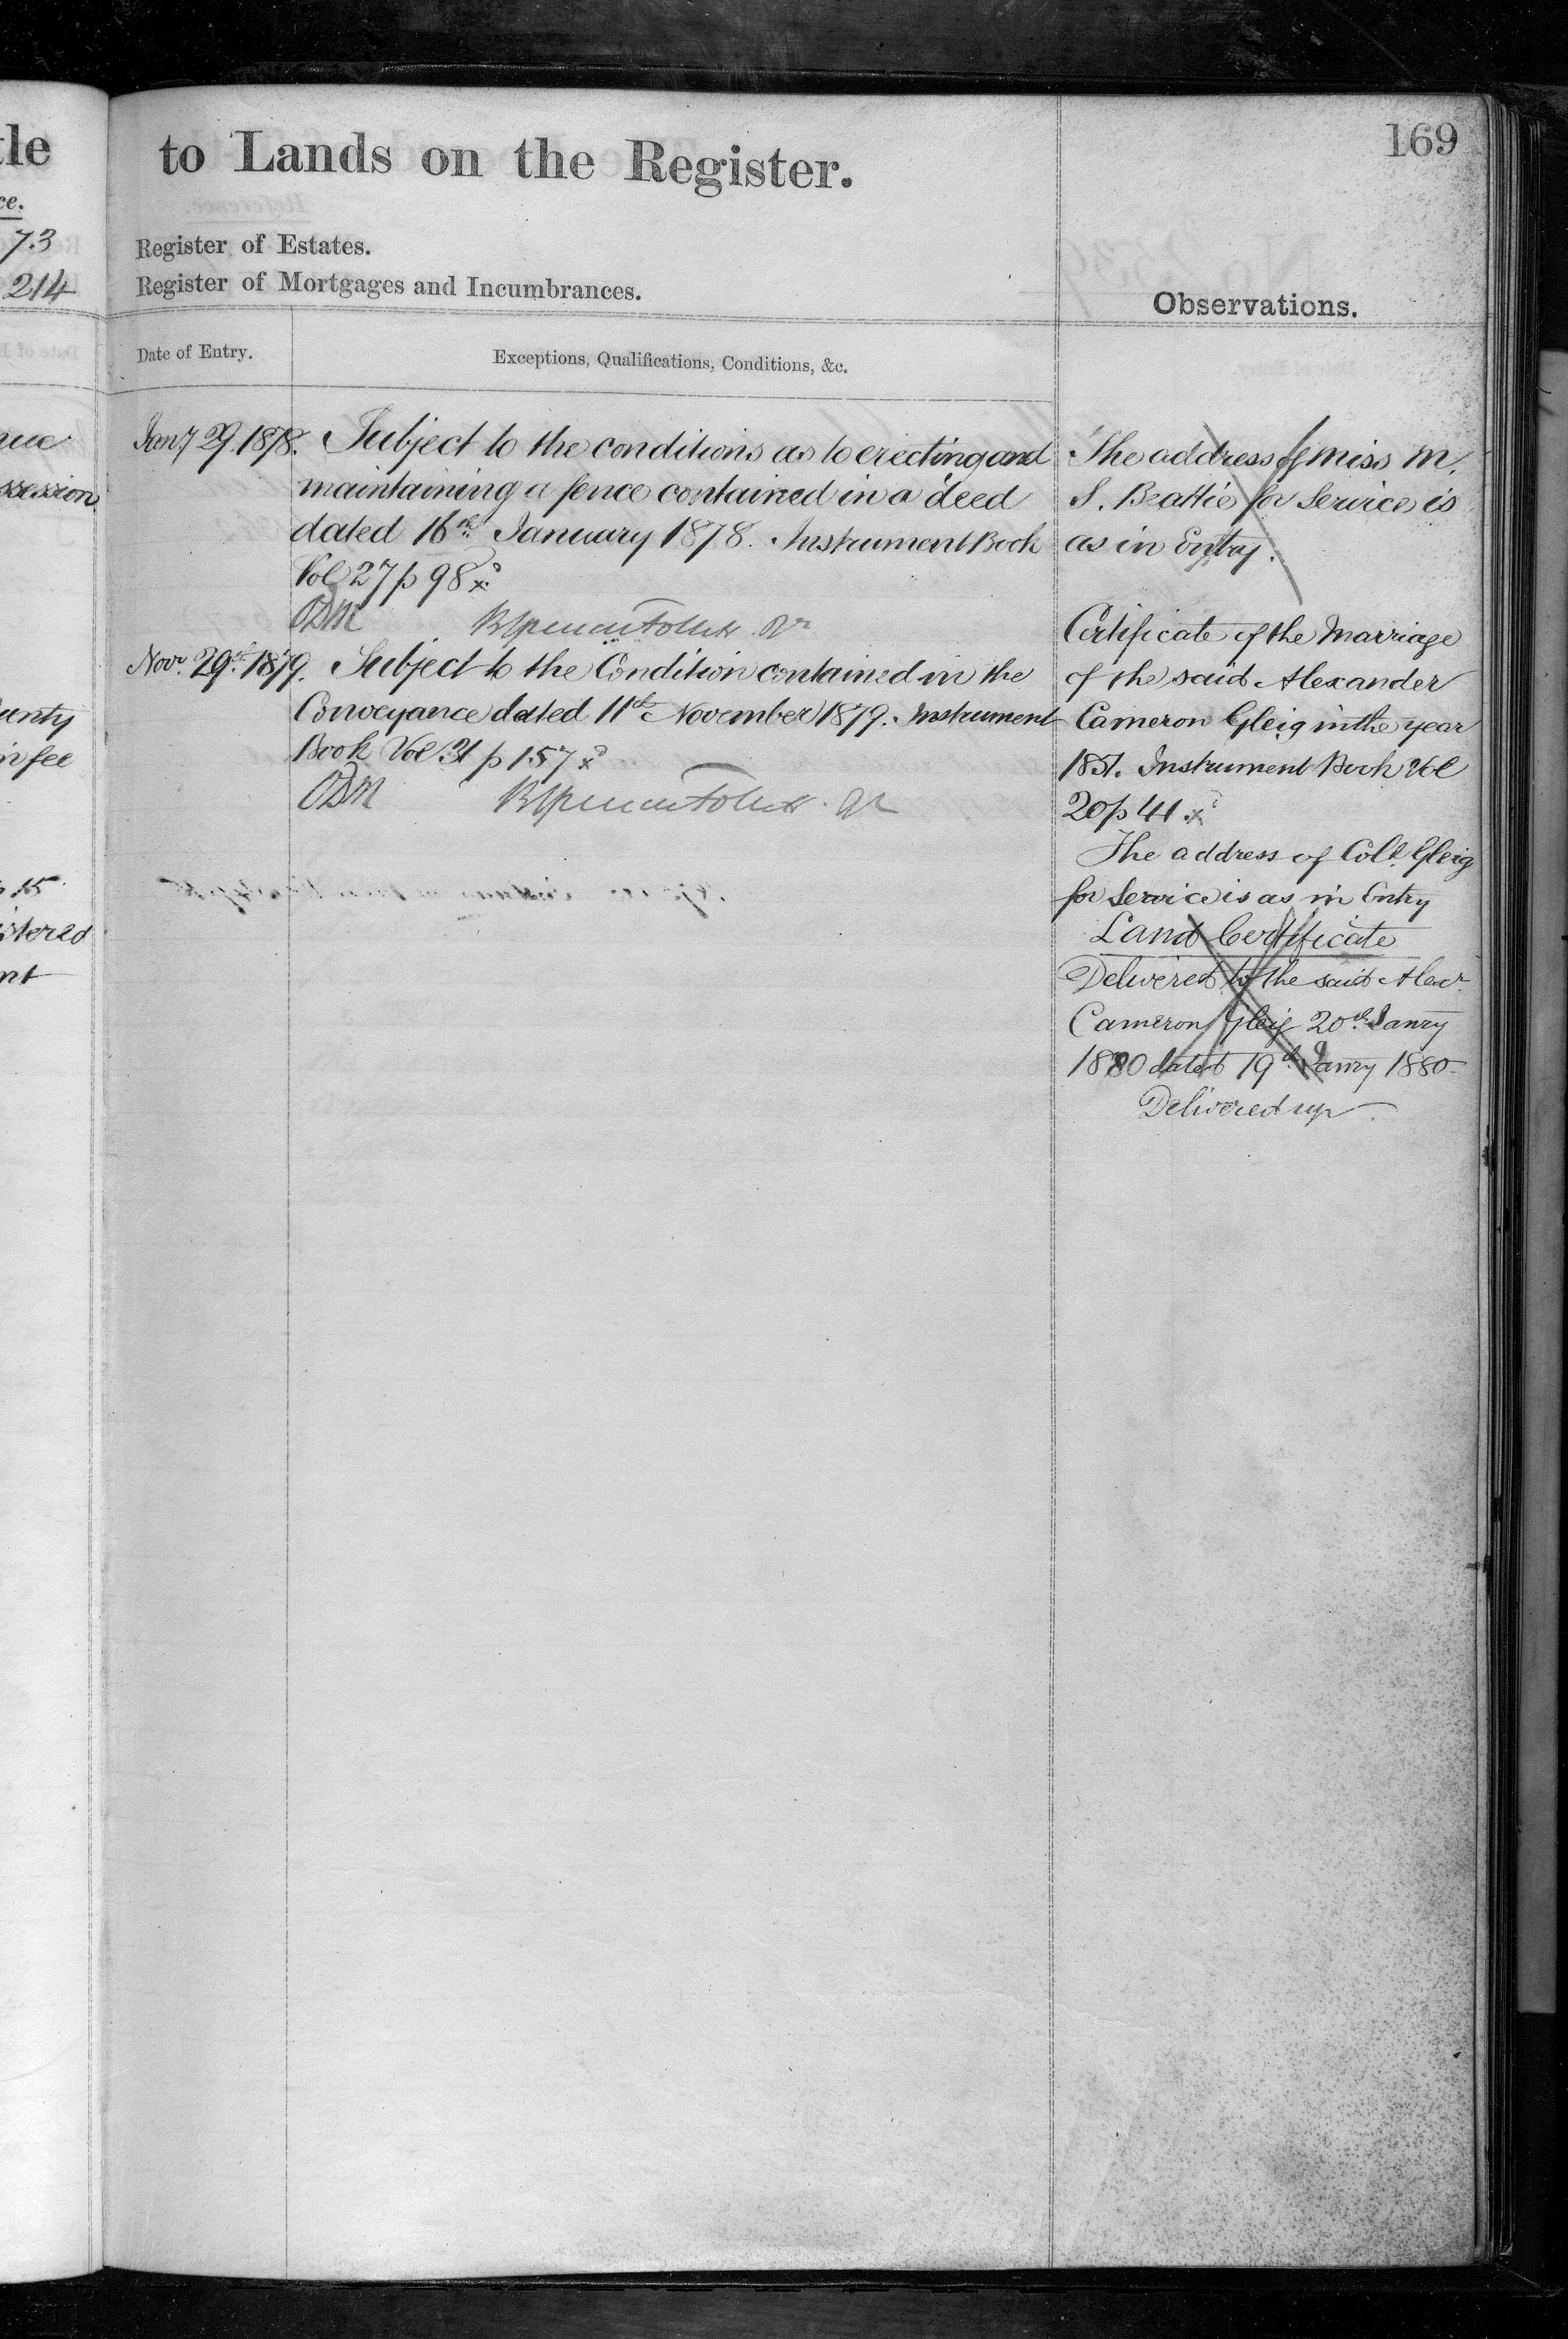 169
tle to Lands on the Register.
ce.
73 Register of Estates.
214 Register of Mortgages and Incumbrances.
Observations.
Date of Entry. Exceptions, Qualifications, Conditions, &c.
Jany 29. 1878. Subject to the conditions as to erecting and
maintaining a fence contained in a deed
dated 16th January 1878. Instrument Book
Vol 27 p 98 x
Novr. 29th 1879. Subject to the Condition contained in the
Conveyance dated 11th November 1879. Instrument
Book Vol 31 p 157 x
The address of Miss M.
S. Beattie for Service is
as in Entry.
Certificate of the Marriage
of the said Alexander
Cameron Gleig in the year
1851. Instrument Book Vol
20 p 41 x
The address of Coll. Gleig
for Service is as in Entry
Land Certificate
Delivered to the said Alexr.
Cameron Gleig 20th Janry
1880 dated 19th Janry 1880
Delivered up
ssession
unty
in fee
15
istered
nt